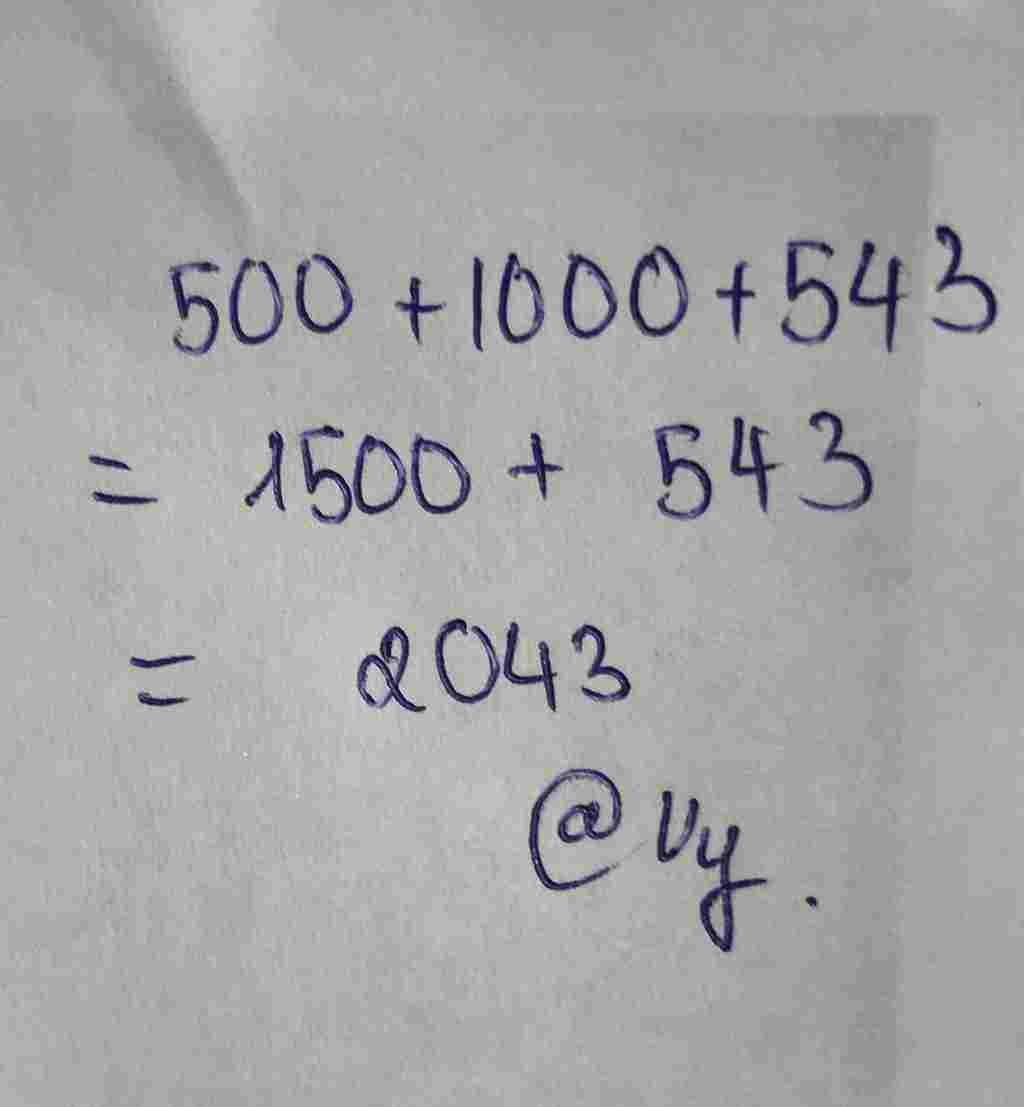 500 + 1000 + 543
= 1500 + 543
= 2043
@ Vy.